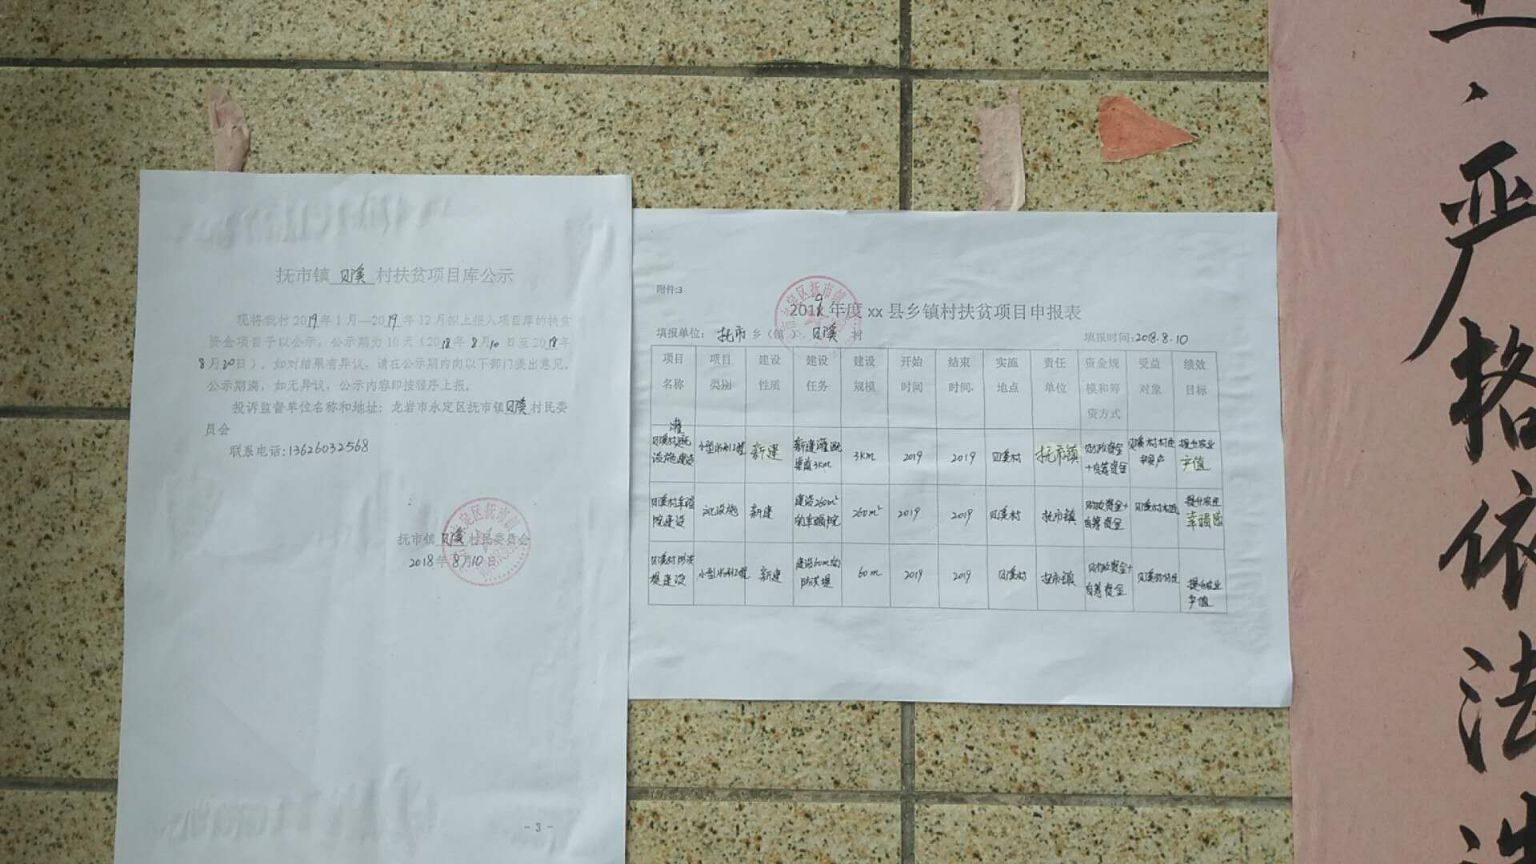 抚市镇 贝溪 村扶贫项目库公示
现将我村2019年1月—2019年12月拟上报入项目库的扶贫
资金项目予以公示,公示期为10天(2018年8月10日至2018年
8月20日)。如对结果有异议,请在公示期内向以下部门提出意见。
公示期满,如无异议,公示内容即按程序上报。
投诉监督单位名称和地址:龙岩市永定区抚市镇贝溪村民委
员会
联系电话:13626032568
抚市镇 贝溪 村民委员会
2018年8月10日
- 3 -
附件:3
2019年度xx县乡镇村扶贫项目申报表
填报单位: 抚市 乡(镇) 贝溪 村 填报时间:2018.8.10
项目名称 项目类别 建设性质 建设任务 建设规模 开始时间 结束时间 实施地点 责任单位 资金规模和筹资方式 受益对象 绩效目标
贝溪村灌溉设施建设 小型水利工程 新建 新建灌溉渠道3Km 3Km 2019 2019 贝溪村 抚市镇 财政资金+自筹资金 提升农业产值
贝溪村幸福院建设 新建 建设260m²的幸福院 260m² 2019 2019 贝溪村 抚市镇 财政资金+自筹资金 贝溪村村民
贝溪村防洪堤建设 小型水利工程 新建 建设60m的防洪堤 60m 2019 2019 贝溪村 抚市镇 财政资金+自筹资金 贝溪村村民 提升农业产值
严格依法